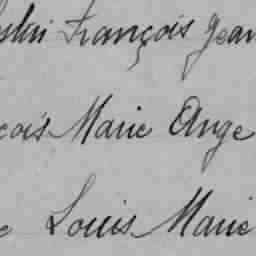 François Jean
çois Marie Ange
Louis Marie